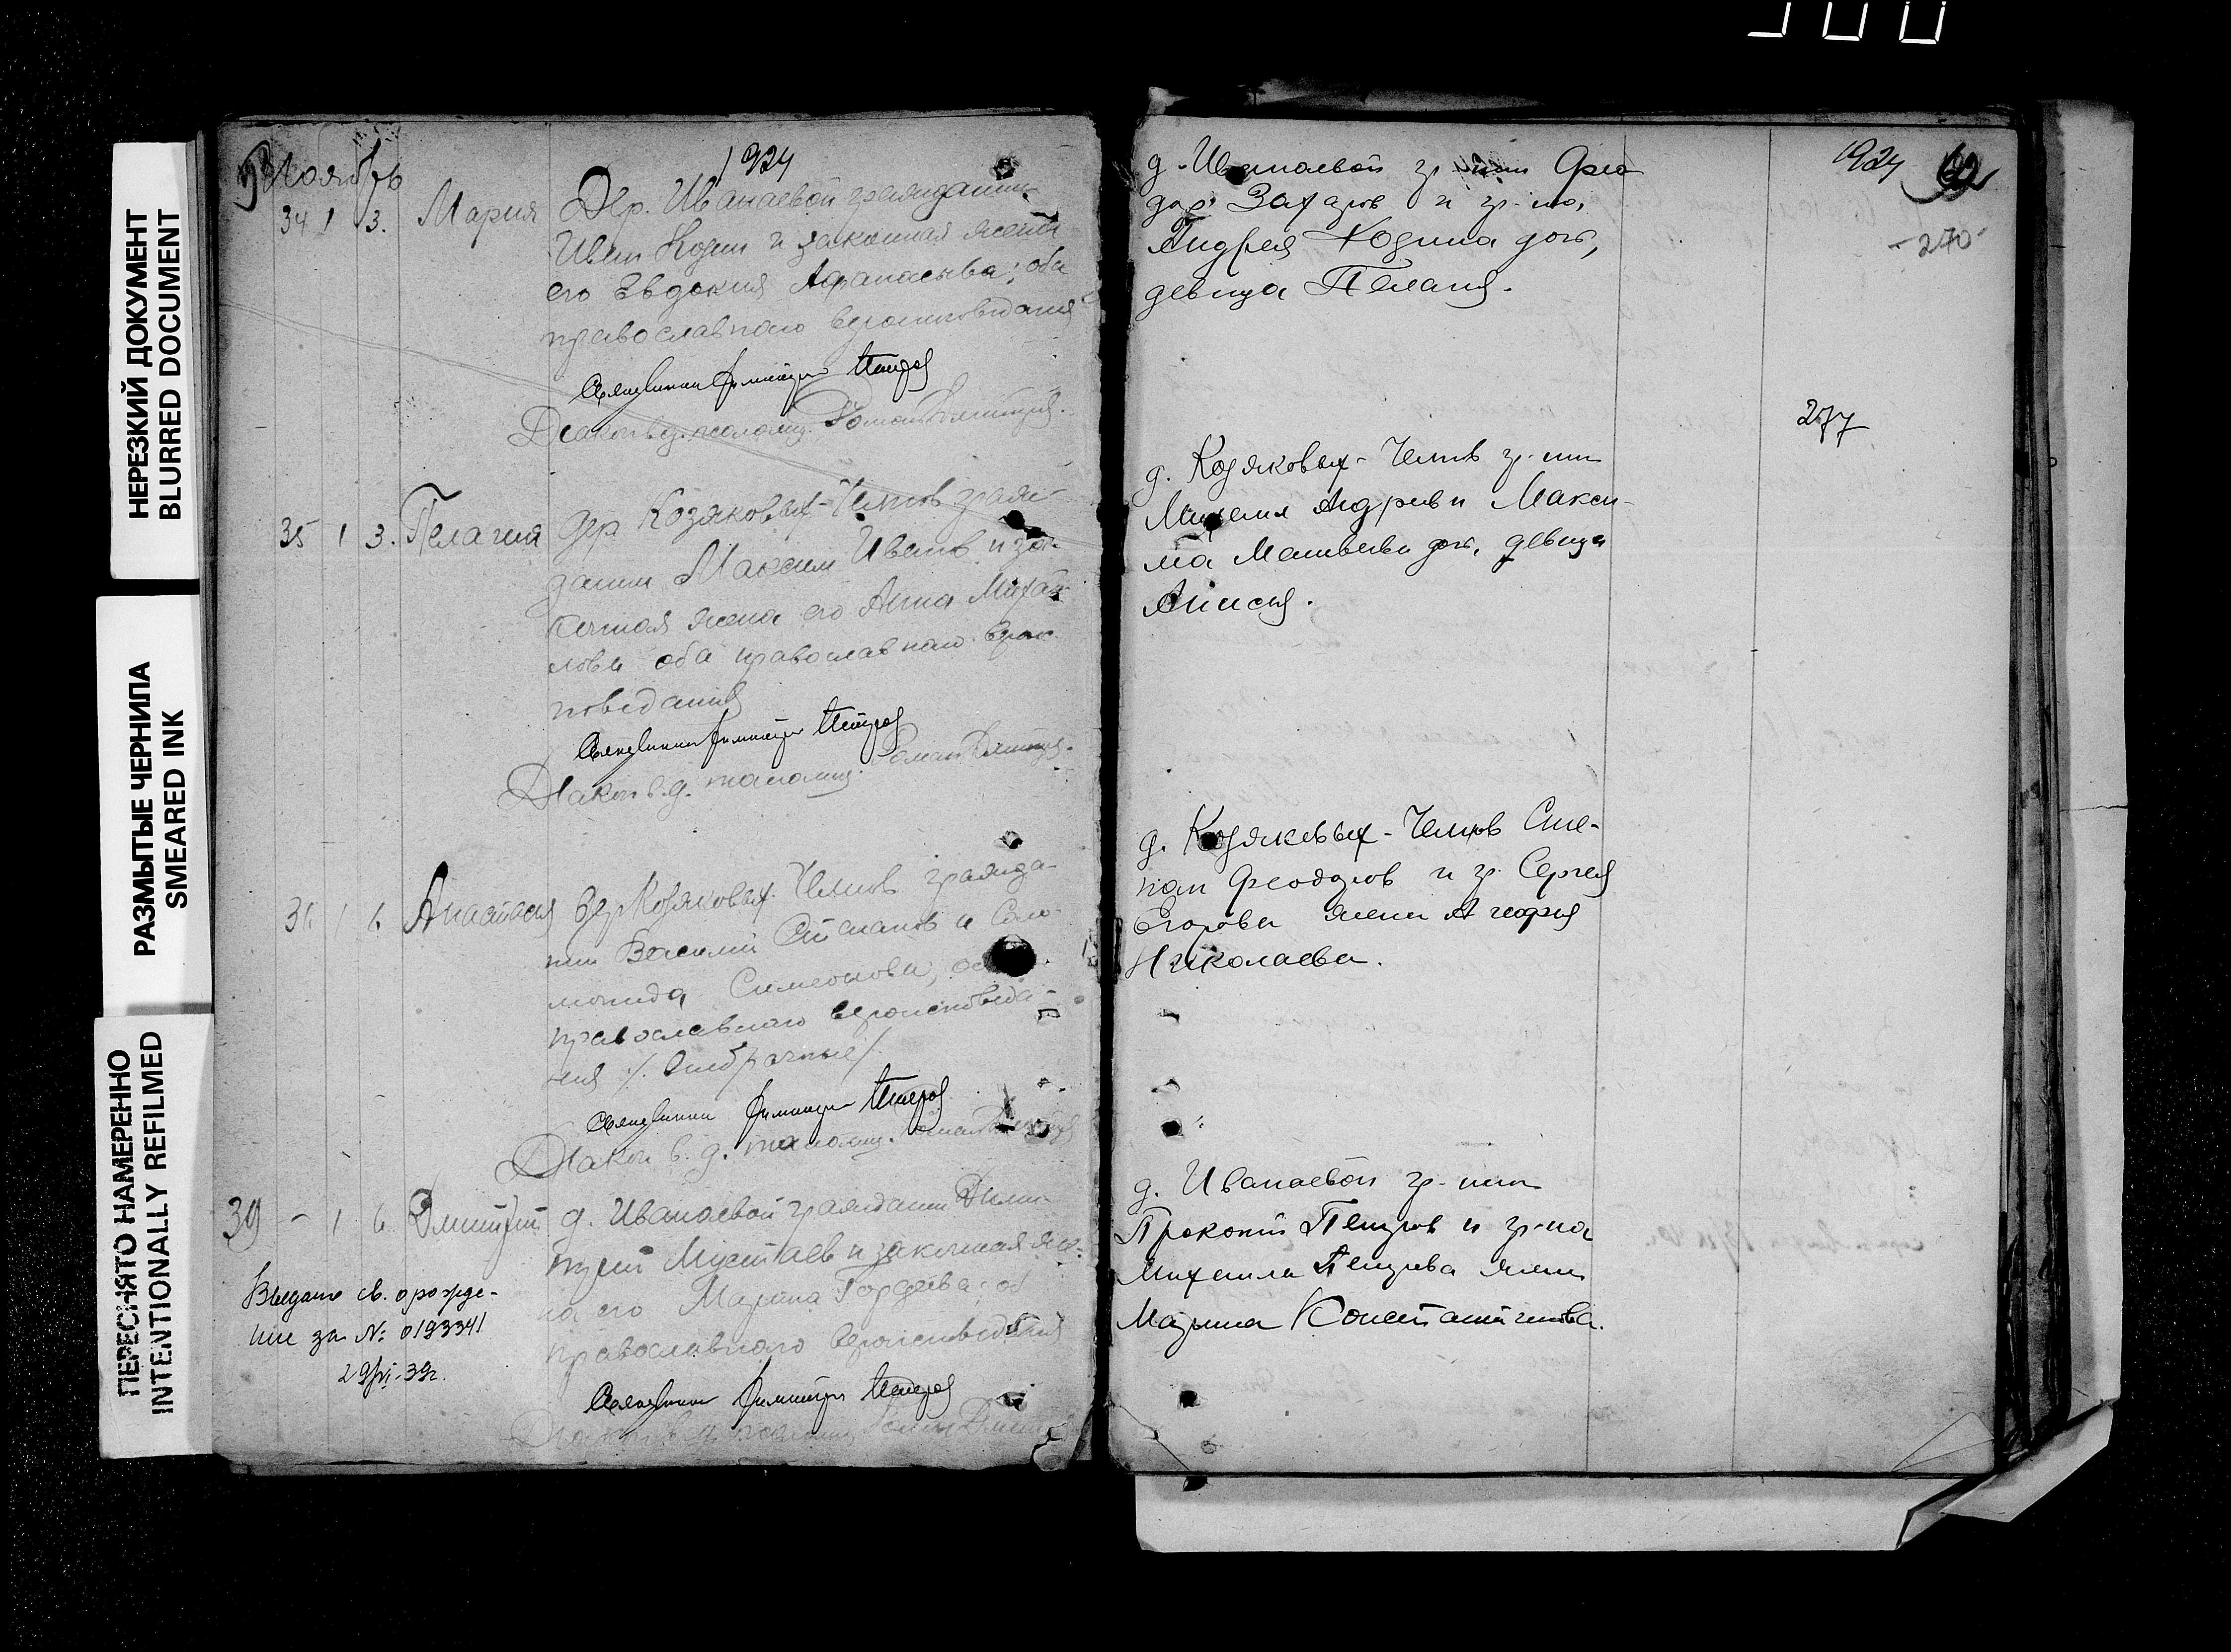 НЕРЕЗКИЙ ДОКУМЕНТ
BLURRED DOCUMENT
РАЗМЫТЫЕ ЧЕРНИЛА
SMEARED INK
ПЕРЕСНЯТО НАМЕРЕННО
INTENTIONALLY REFILMED
Ноябрь
1924
34 1 3. Мария Дер. Иванаевой гражданин
Иван Козин и законная жена
его Евдокия Афанасьева; оба
православного вероисповедания
Священник Димитрий Петров
Диакон в. д. псаломщ. Роман Дмитриев.
35 1 3. Пелагия дер Козяковых-Челнов граж-
данин Максим Иванов и за-
конная жена его Анна Михай-
лова оба православного веро-
поведания
Священник Димитрий Петров
Диакон в. д. псаломщ. Роман Дмитриев.
1 6 Анастасия дер Козяковых Челнов гражда-
нин Василий Степанов и Соло-
монида Симеонова,
православного вероисповеда-
ния
Священник Димитрий Петров
Диакон в. д. псаломщ. Роман
39 - 1 6. Дмитрий д. Иванаевой гражданин Дими-
трий Мустаев и законная же-
на его Марина Гордеева; об
православного вероисповедания
Священник Димитрий Петров
Диакон в д. псаломщ Роман
Выдано св. о рожде-
нии за №: 0193341
29/VI-39г.
1924
62
-270-
д. Иванаевой гр-нин Фео
дор Захаров и гр-на,
Андрея Козина дочь,
девица Пелагия.
277
д. Козяковых-Челнов гр-нин
Михаил Андреев и Макси-
ма Матвеева дочь, девица
Анисия.
д. Козяковых-Челнов Сте-
пан Феодоров и гр. Сергея
Егорова жена
Николаева.
д. Иванаевой гр-нин
Прокопий Петров и гр-на
Михаила Петрова жена
Марина Константинова.